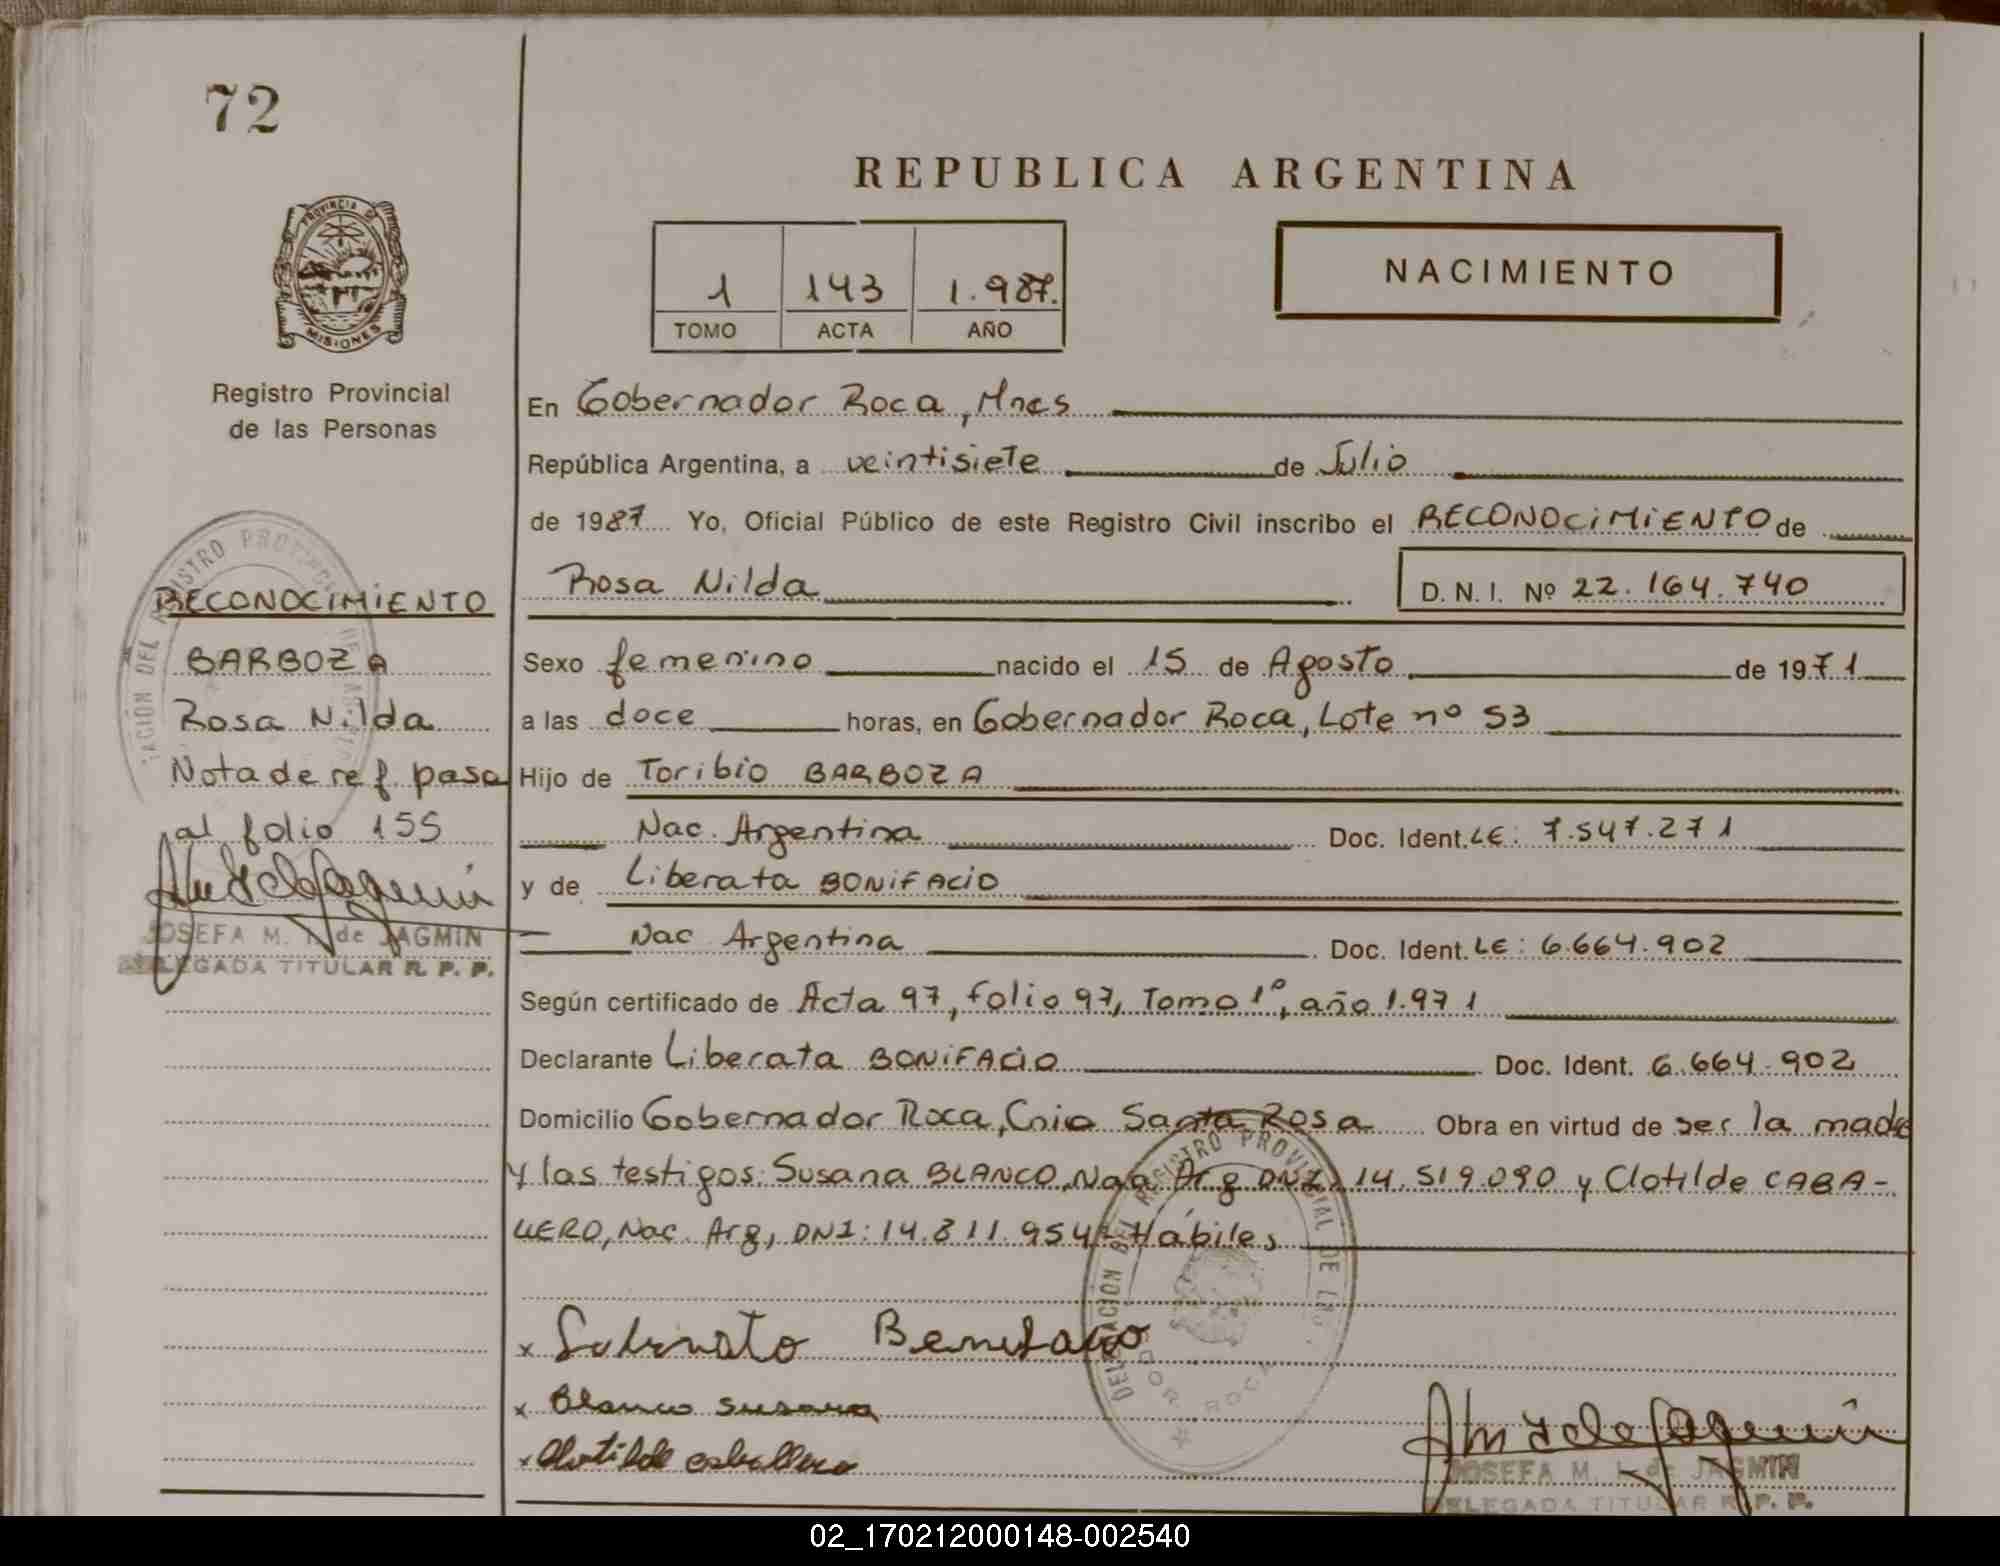 72
REPUBLICA ARGENTINA
PROVINCIA DE
MISIONES
1 143 1.987.
TOMO ACTA AÑO
NACIMIENTO
Registro Provincial
de las Personas
En Gobernador Roca, Mnes
República Argentina, a veintisiete de Julio
de 1987 Yo, Oficial Público de este Registro Civil inscribo el RECONOCIMIENTO de
Rosa Nilda D.N.I. Nº 22.164.740
RECONOCIMIENTO
BARBOZA
Rosa Nilda
Nota de ref. pasa
al folio 155
JOSEFA M. de JAGMIN
DELEGADA TITULAR R. P. P.
Sexo femenino nacido el 15 de Agosto de 1971
a las doce horas, en Gobernador Roca, Lote nº 53
Hijo de Toribio BARBOZA
Nac. Argentina Doc. Ident. LE: 7.547.271
y de Liberata BONIFACIO
Nac Argentina Doc. Ident. LE: 6.664.902
Según certificado de Acta 97, folio 97, Tomo 1º, año 1.971
Declarante Liberata BONIFACIO Doc. Ident. 6.664.902
Domicilio Gobernador Roca, Cnia Santa Rosa Obra en virtud de ser la madre
y las testigos: Susana BLANCO, Nac Arg DNI: 14.519.090 y Clotilde CABA-
LLERO, Nac. Arg, DNI: 14.811.954- Hábiles
x
x Blanco Susana
x Clotilde caballero
JOSEFA M. de JAGMIN
DELEGADA TITULAR R. P. P.
02_170212000148-002540